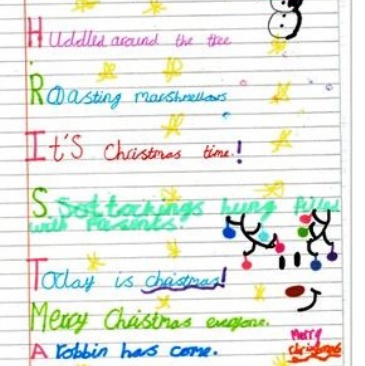 Huddled around the tree
Roasting marshmellows
It's Christmas time!
S hung
with Presents!
Today is christmas!
Merry Christmas everyone.
A robbin has come.
Merry